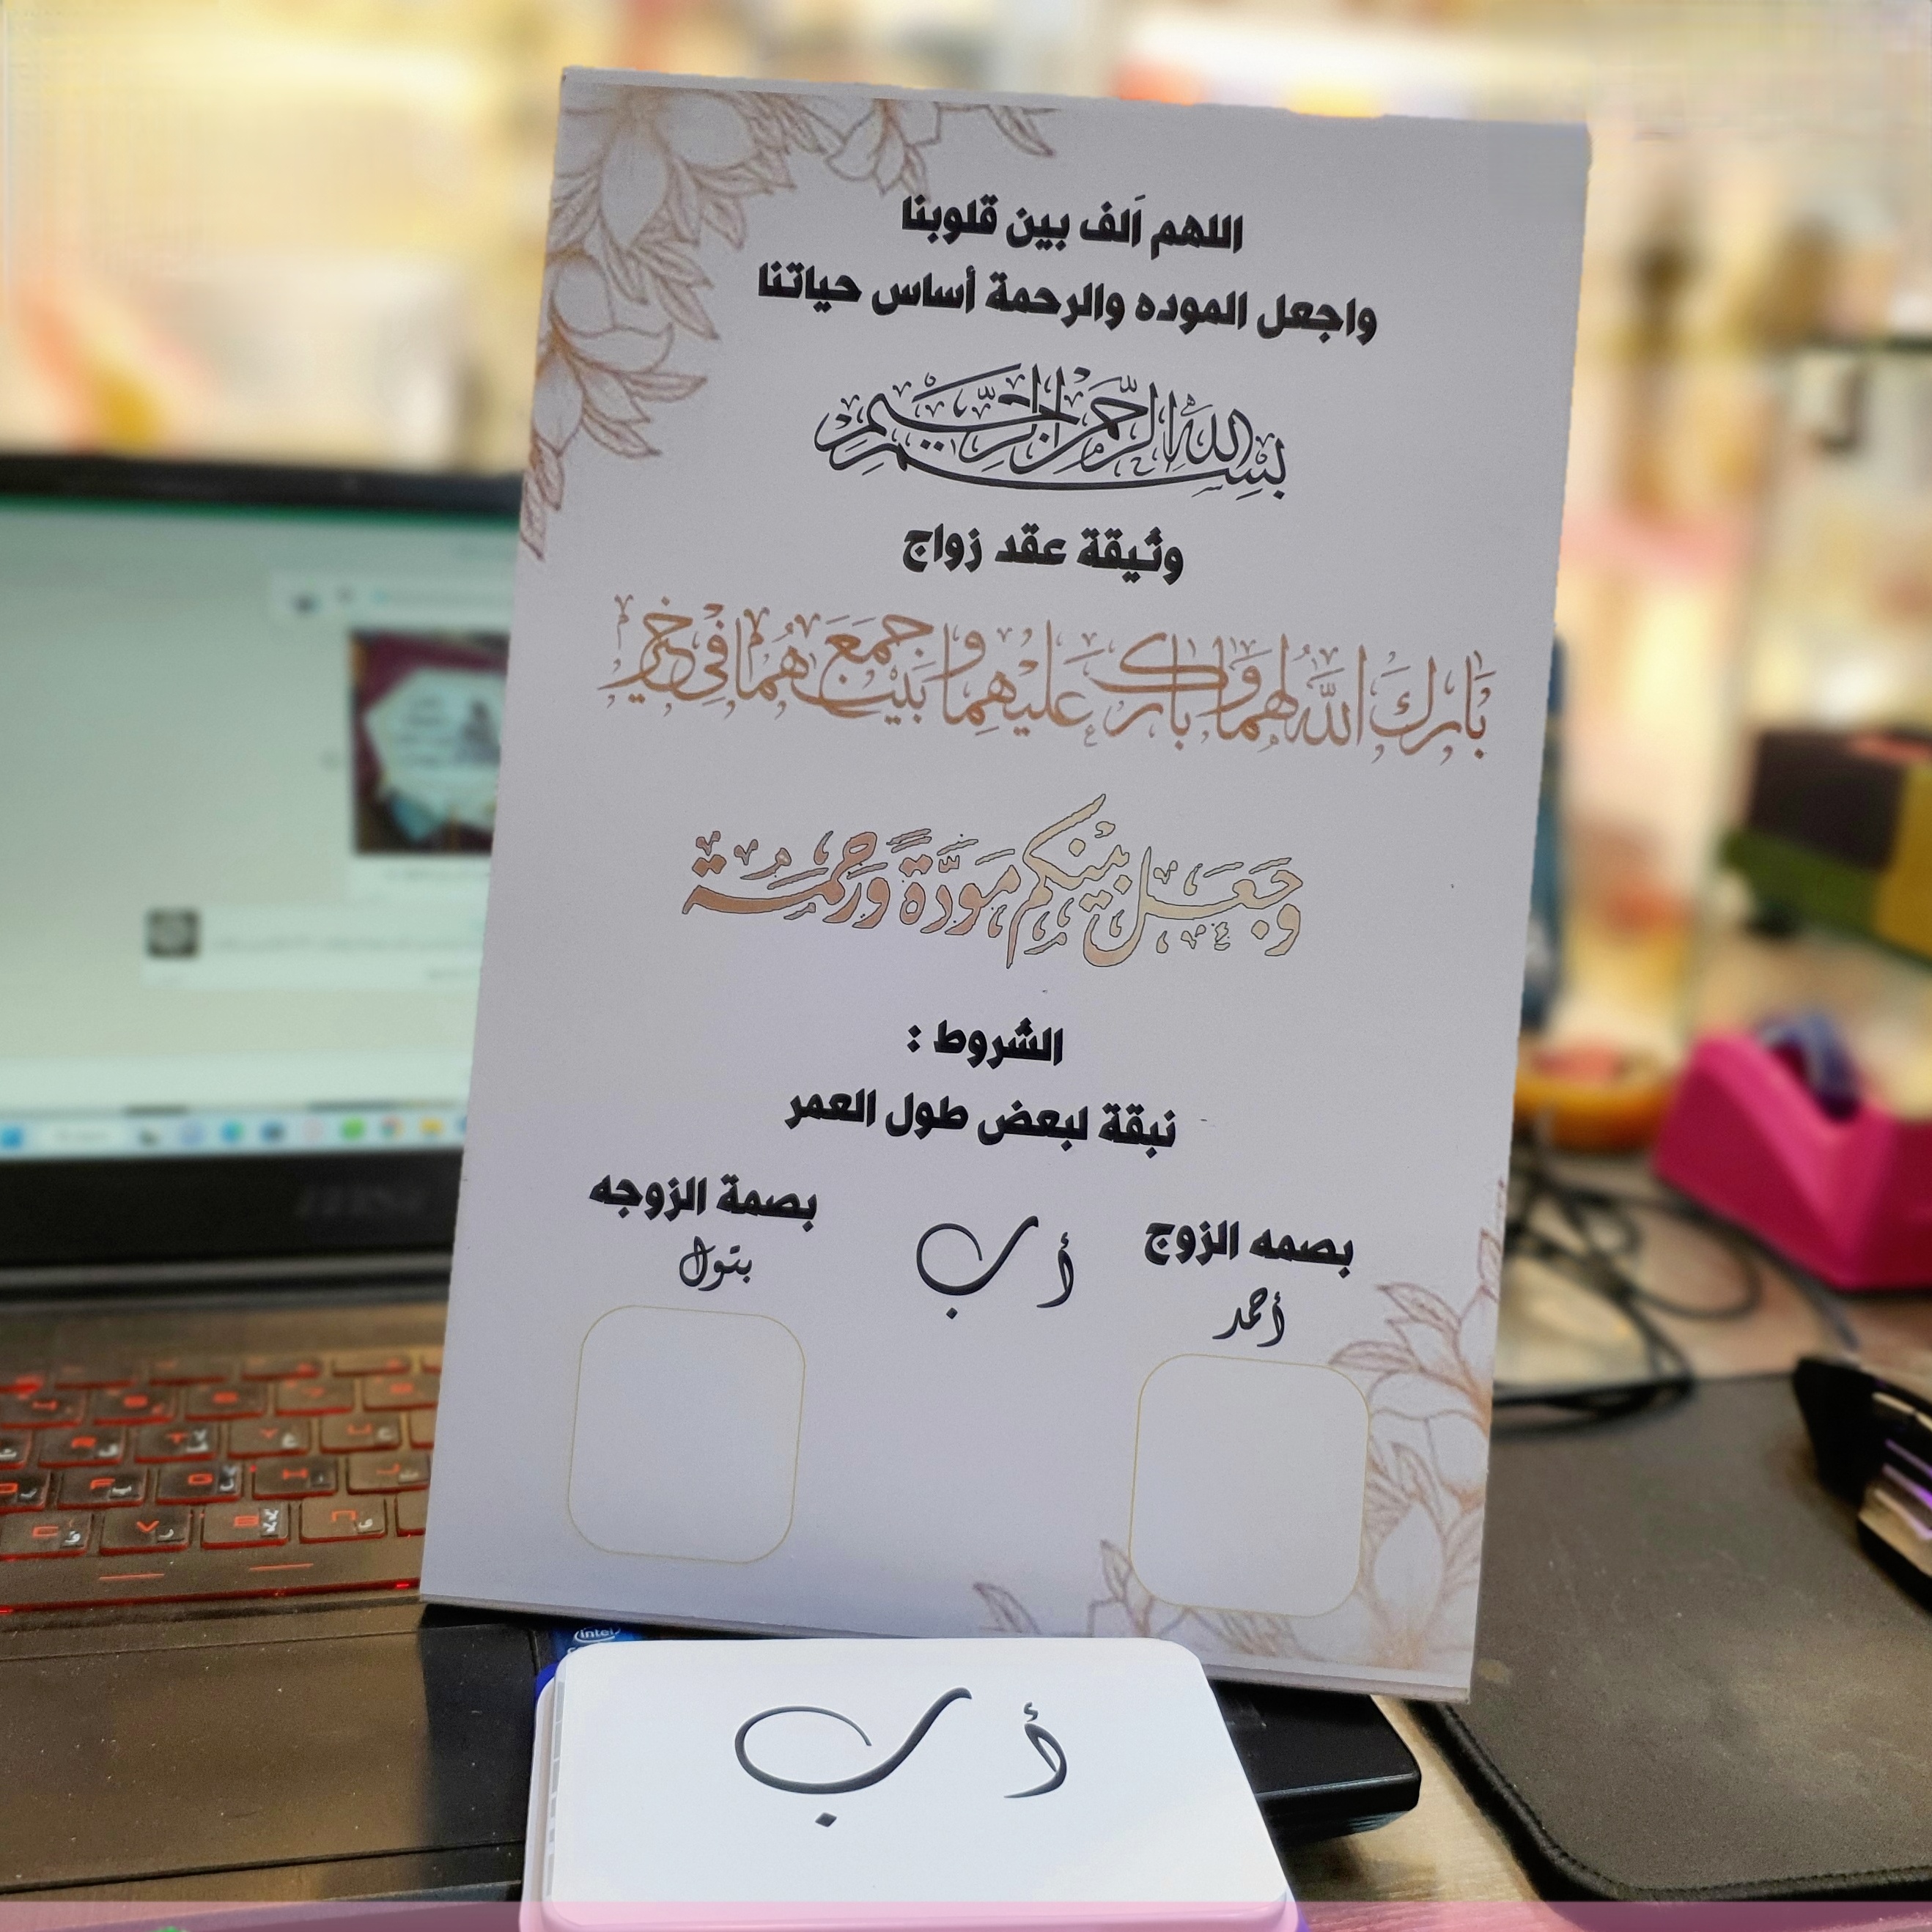 اللهم اَلف بين قلوبنا
واجعل الموده والرحمة أساس حياتنا
بسم الله الرحمن الرحيم
وثيقة عقد زواج
بَارك الله لهما وبَارك عليهما وجمعَ بينهما في خير
وجعل بينكم مودة ورحمة
الشروط :
نبقة لبعض طول العمر
بصمه الزوج
أحمد
أ ب
بصمة الزوجه
بتول
intel
أ ب